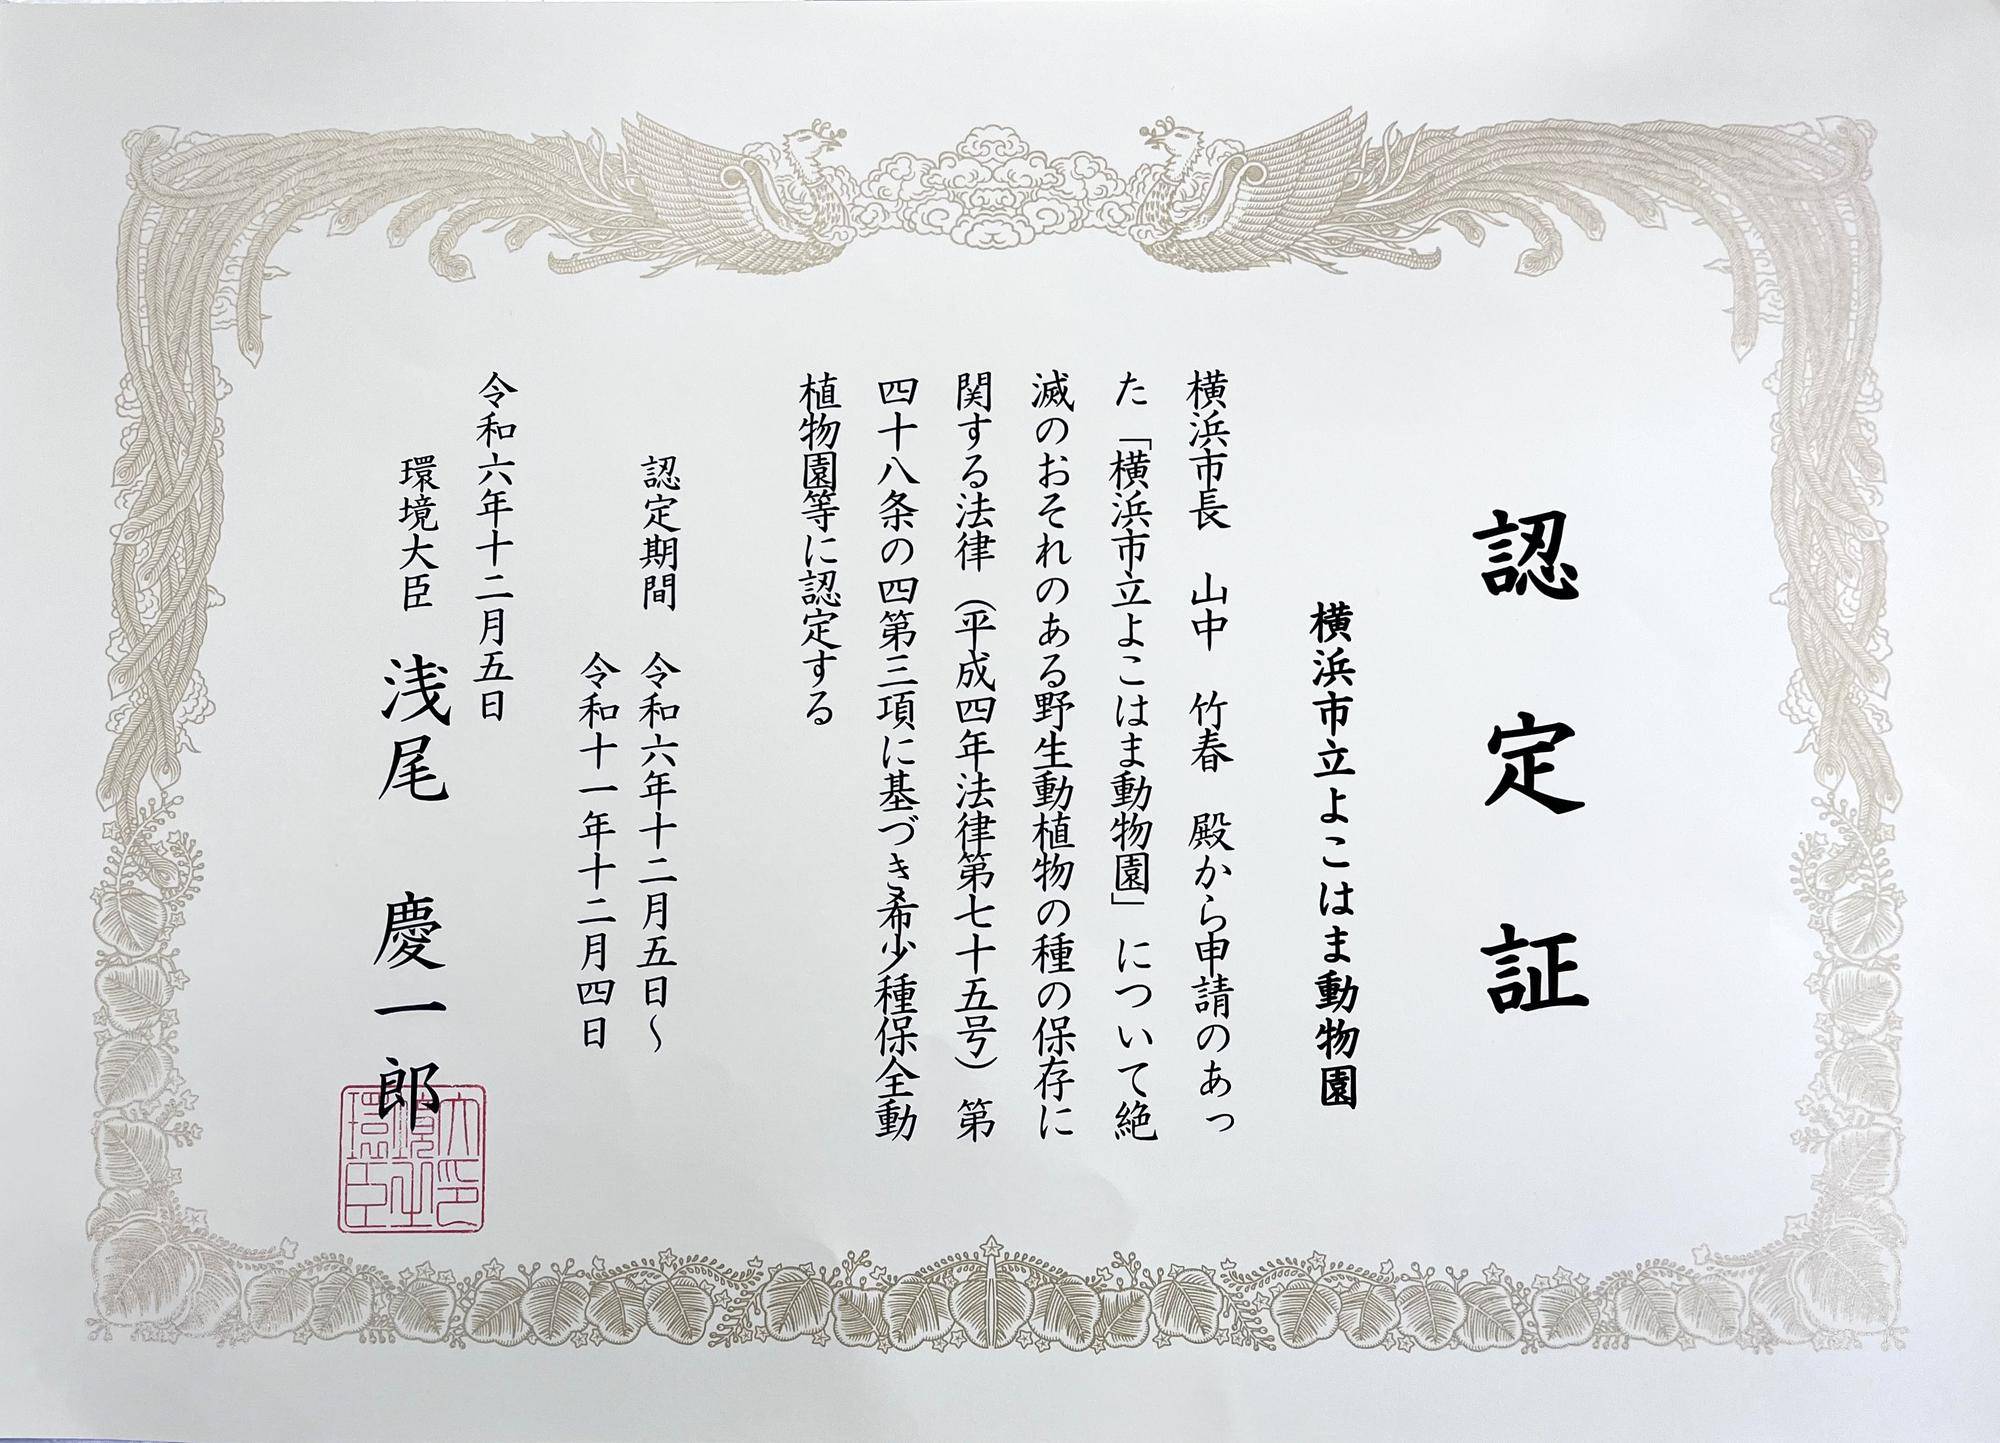 認定証
横浜市立よこはま動物園
横浜市長　山中　竹春　殿から申請のあっ
た「横浜市立よこはま動物園」について絶
滅のおそれのある野生動植物の種の保存に
関する法律（平成四年法律第七十五号）第
四十八条の四第三項に基づき希少種保全動
植物園等に認定する
認定期間　令和六年十二月五日～
令和十一年十二月四日
令和六年十二月五日
環境大臣　浅尾　慶一郎
環境大臣之印